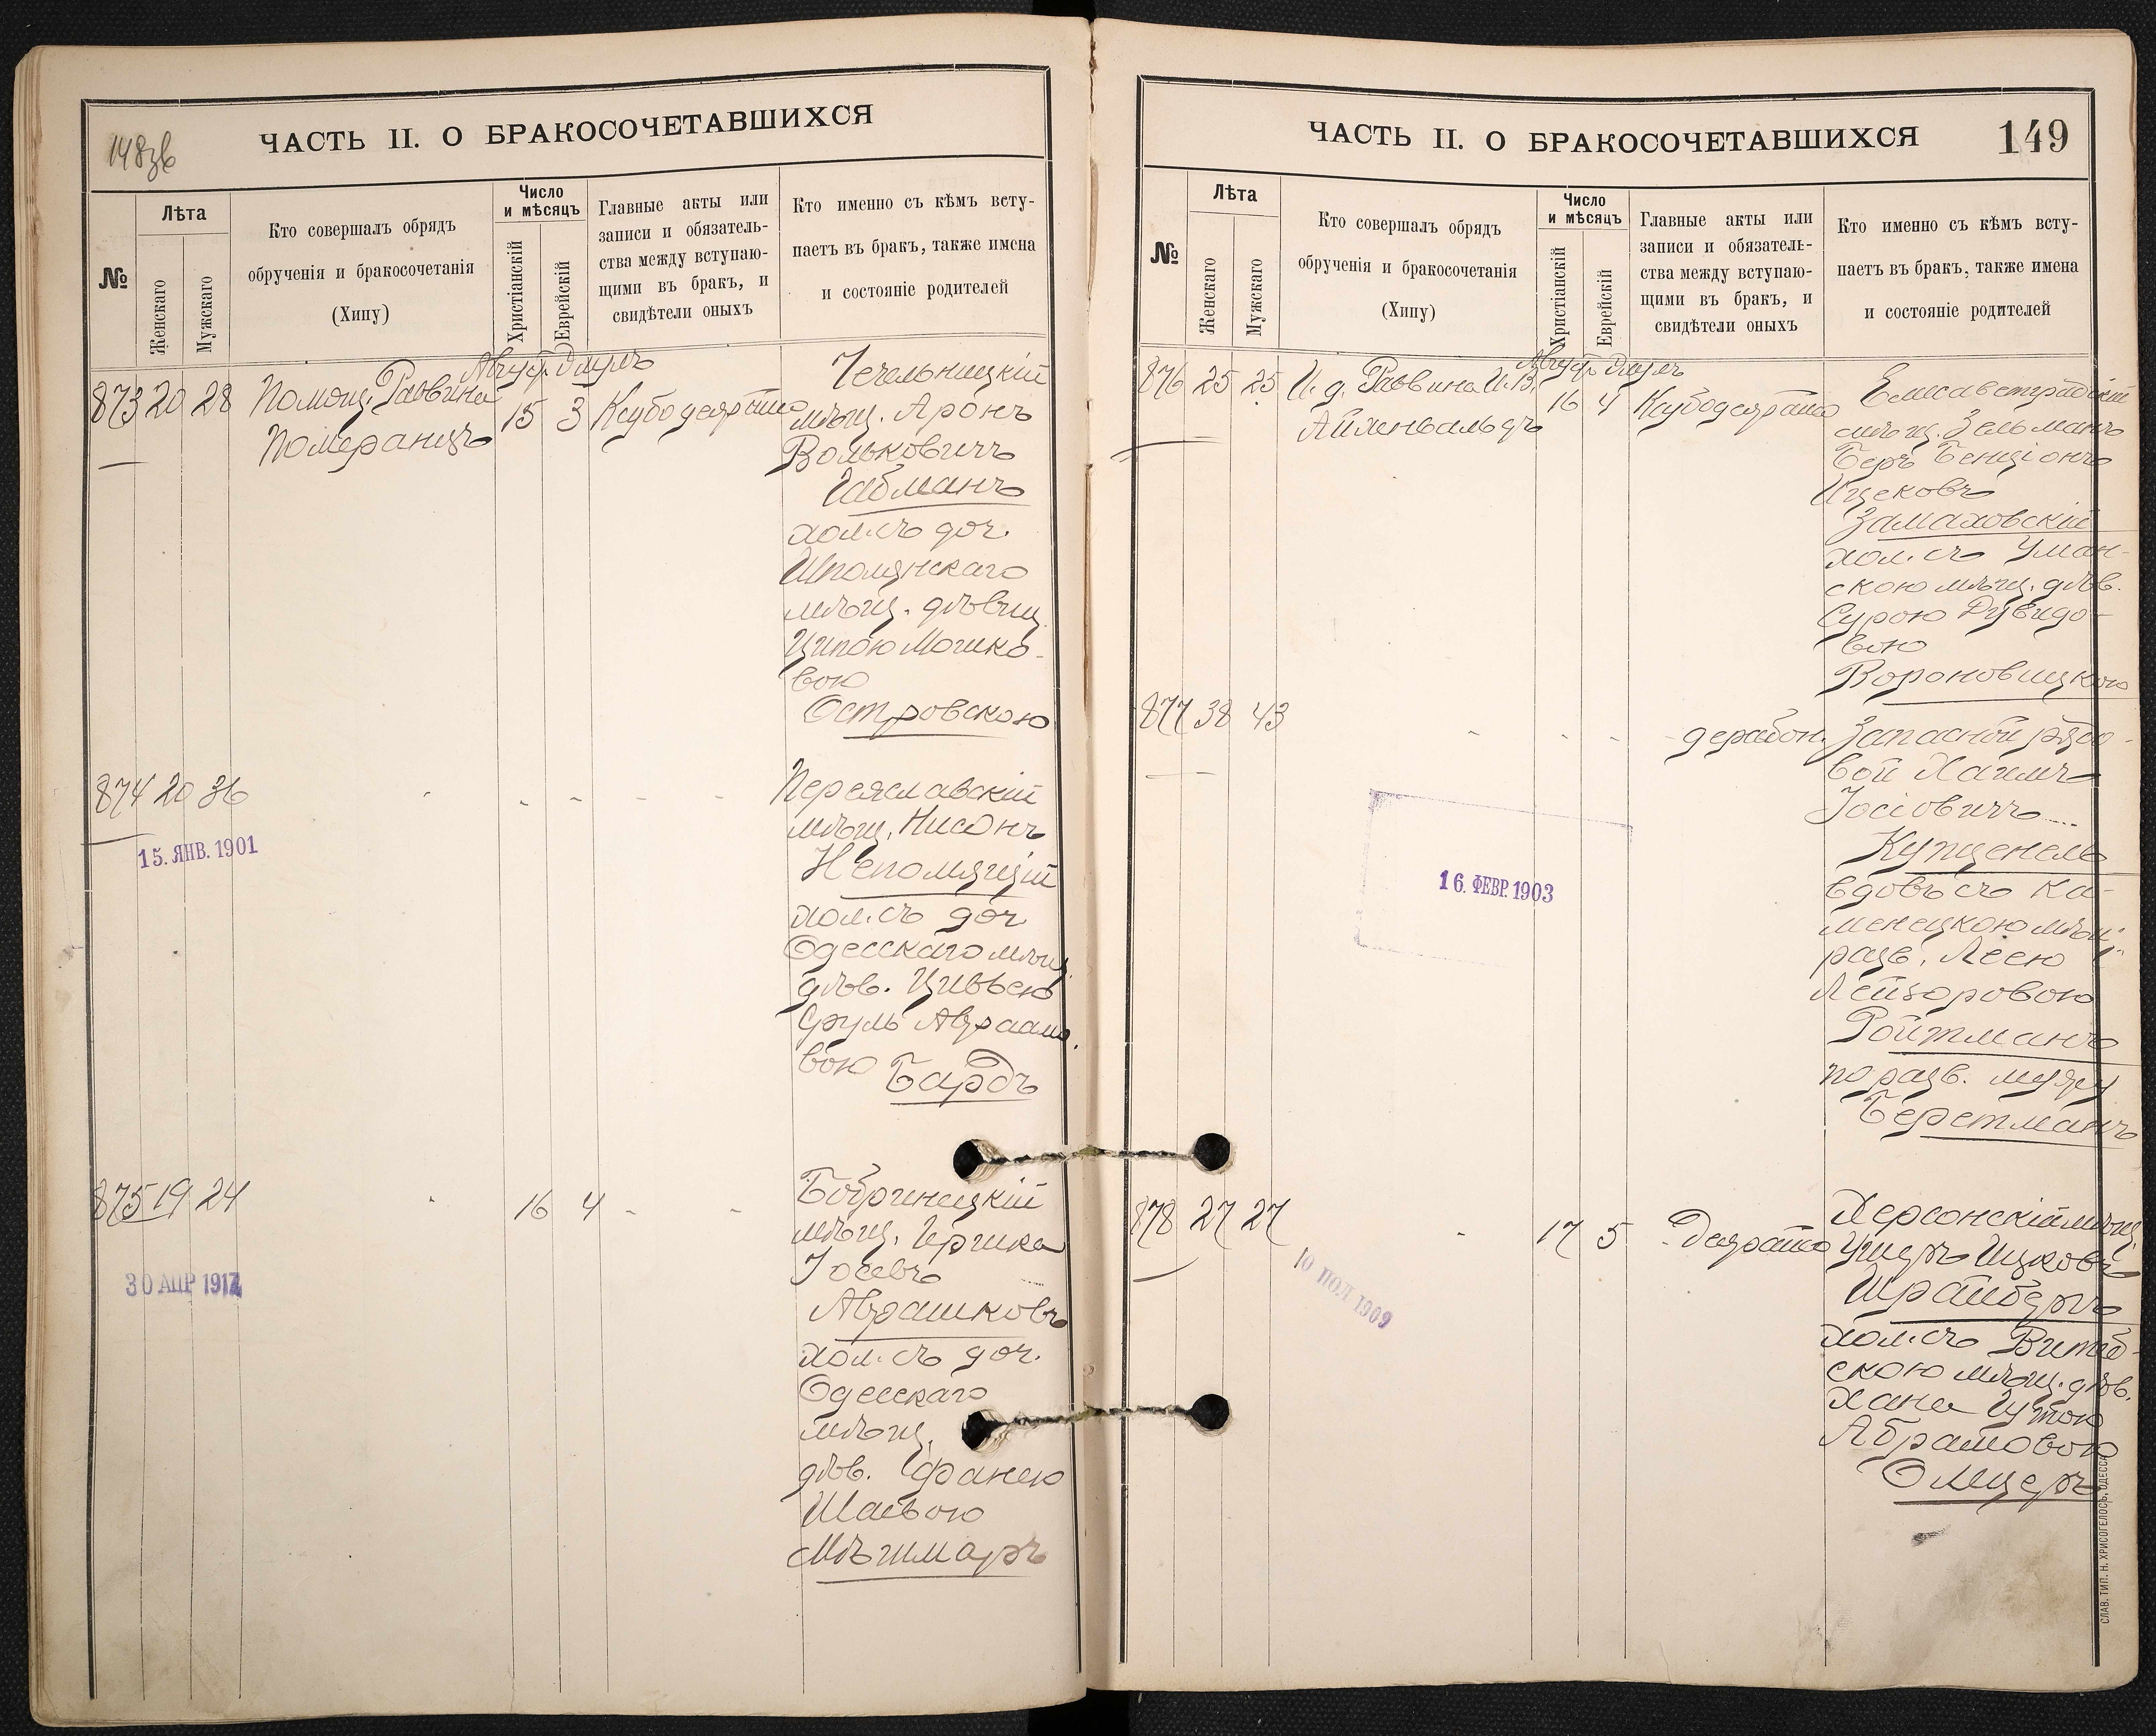 148 зв
ЧАСТЬ II. О БРАКОСОЧЕТАВШИХСЯ
№
Лѣта
Женскаго
Мужскаго
Кто совершалъ обрядъ
обрученія и бракосочетанія
(Хипу)
Число
и мѣсяцъ
Христіанскій
Еврейскій
Главные акты или
записи и обязатель-
ства между вступаю-
щими въ бракъ, и
свидѣтели оныхъ
Кто именно съ кѣмъ всту-
паетъ въ бракъ, также имена
и состояніе родителей
Август. Элулъ
873 20 28 Помощ. Раввина 15 3
Померанцъ
Чечельницкій
мѣщ. Аронъ
Вольковичъ
Габманъ
хол. съ доч.
Шполянскаго
мѣщ. дѣвиц.
Ципою Мошко-
вою
Островскою
874 20 36
15. ЯНВ. 1901
Переяславскій
мѣщ. Нисонъ
Непомящій
хол. съ доч
Одесскаго мѣщ.
дѣв. Цивьею
Сруль Абрамо-
вою Бардъ
875 19 24 16 4
30 АПР 1917
Бобринецкій
мѣщ. Гершка
Іосевъ
Абрашковъ
хол. съ доч.
Одесскаго
мѣщ.
дѣв. Фанею
Шаевою
ЧАСТЬ II. О БРАКОСОЧЕТАВШИХСЯ 149
№
Лѣта
Женскаго
Мужскаго
Кто совершалъ обрядъ
обрученія и бракосочетанія
(Хипу)
Число
и мѣсяцъ
Христіанскій
Еврейскій
Главные акты или
записи и обязатель-
ства между вступаю-
щими въ бракъ, и
свидѣтели оныхъ
Кто именно съ кѣмъ всту-
паетъ въ бракъ, также имена
и состояніе родителей
Август. Элулъ
876 25 25 И. д. Раввина И. В. 16 4
Айхенвальдъ
Елисаветградскій
мѣщ. Зельманъ
Беръ Бенціонъ
Ицковъ
Замаховскій
хол. съ Уман-
скою мѣщ. дѣв.
Сурою Дувидо-
вою
Вороновицкою
877 38 43
16. ФЕВР. 1903
Запасной рядо-
вой Хаимъ
Іосіовичъ
Купценель
вдовъ съ Ка-
менецкою мѣщ.
разв. Леею
Лейзоровою
Ройтманъ
по разв. мужу
Беретманъ
878 27 27 17 5
10 ИЮЛ 1909
Херсонскій мѣщ.
Ушеръ Ицковъ
Шрайберъ
хол. съ Витеб-
скою мѣщ. дѣв.
Хана Гутою
Абрамовою
СЛАВ. ТИП. Н. ХРИСОГЕЛОСЪ, ОДЕССА